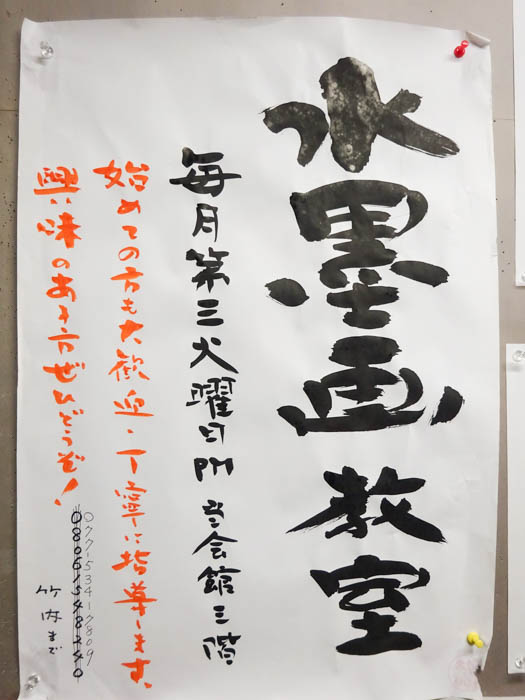 水墨画教室
毎月第三火曜日PM 当会館三階
始めての方も大歓迎・丁寧に指導します。
興味のある方ぜひどうぞ!
竹内まで